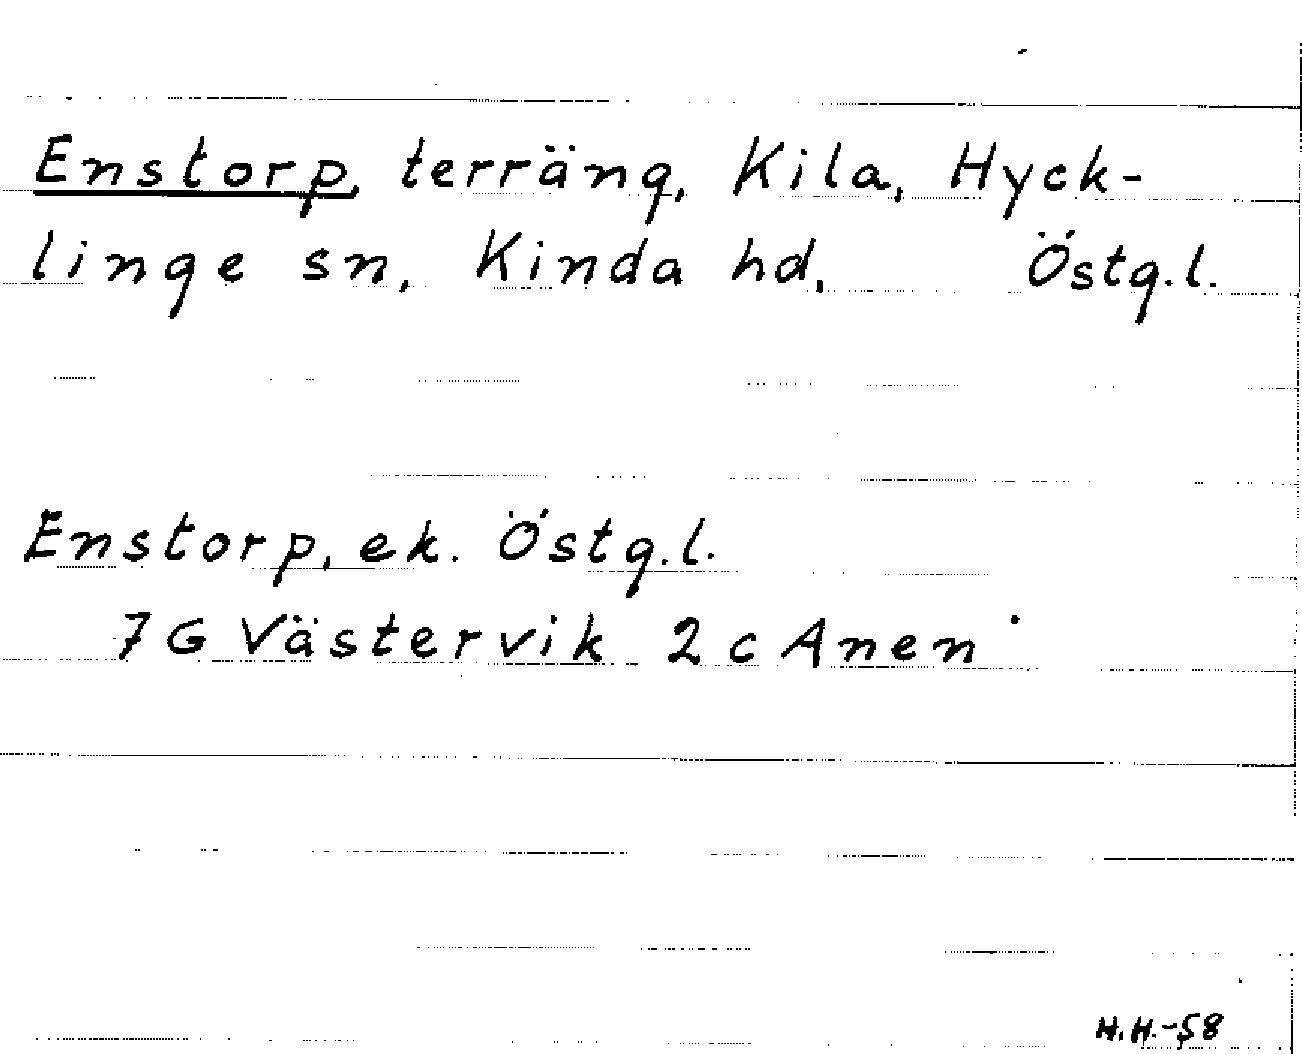 Enstorp, terräng, Kila, Hyck-
linge sn, Kinda hd, Östg.l.
Enstorp, ek. Östg.l.
7 G Västervik 2 c Anen
H.H.-58